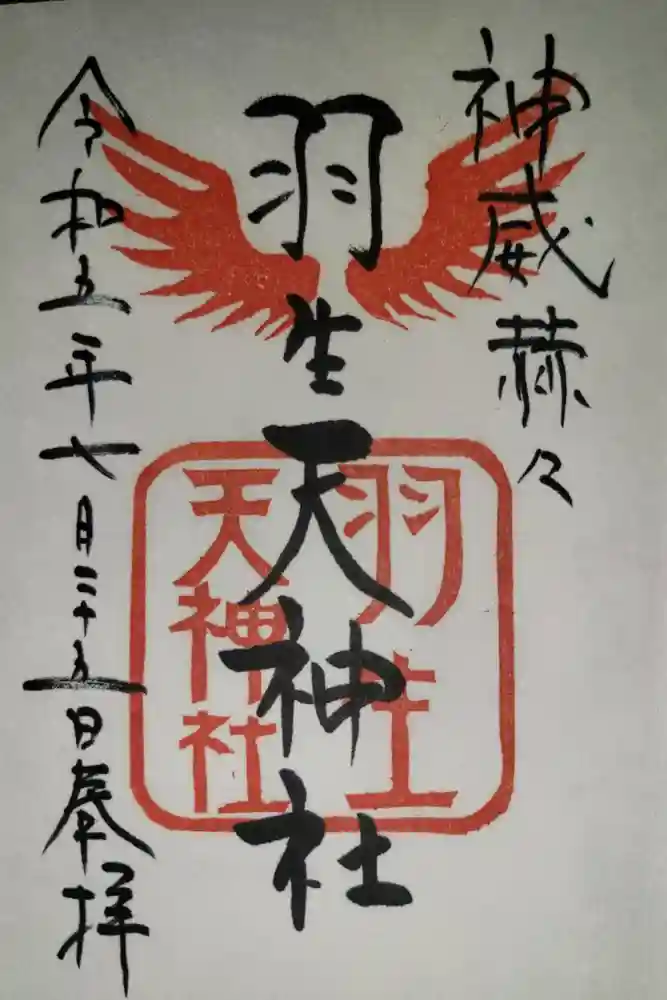 神威赫々
羽生天神社
羽生
天神社
令和五年七月二十五日奉拝